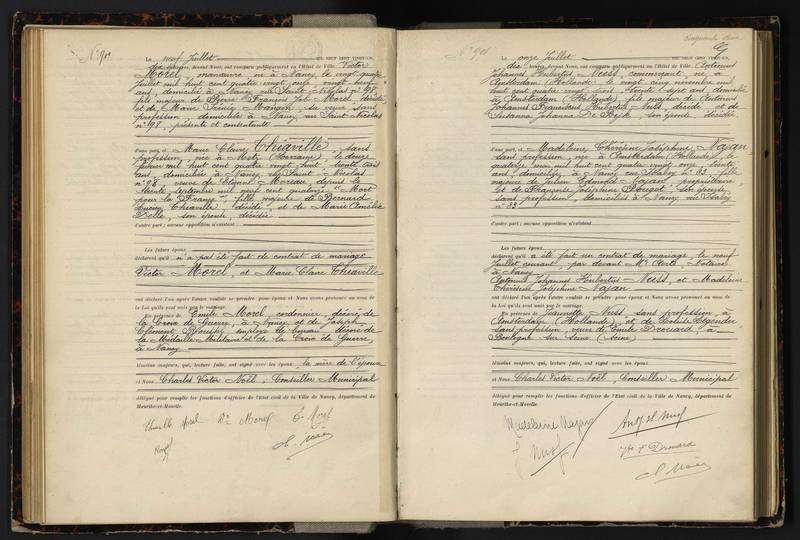 N° 900
Le neuf Juillet mil neuf cent vingt-un,
dix heures, devant Nous, ont comparu publiquement en l'Hôtel de Ville Victor
Morel, manœuvre né à Nancy, le vingt quatre
Juillet mil huit cent quatre vingt onze vingt neuf
ans, domicilié à Nancy rue Saint-Nicolas n° 98,
fils majeur de Pierre François Job Morel, décédé
et de Marie Mangin, sa veuve sans
profession domiciliée à Nancy rue Saint Nicolas
n° 98, présente et consentante
d'une part, et Marie Claire Chiaville, sans
profession, née à Metz (Lorraine), le douze
mil huit cent quatre vingt huit trente trois
ans, domiciliée à Nancy rue Saint-Nicolas
n° 98 veuve de Clément Moreau depuis le
trente septembre mil neuf cent quatorze "Mort
pour la France", fille majeure de Bernard
Chiaville, décédé, et de Marie Amélie
Delle, son épouse, décédée
d'autre part; aucune opposition n'existant
Les futurs époux
déclarent qu'il n'a pas été fait de contrat de mariage
Victor Morel, et Marie Claire Chiaville
ont déclaré l'un après l'autre vouloir se prendre pour époux et Nous avons prononcé au nom de
la Loi qu'ils sont unis par le mariage.
En présence de Emile Morel, cordonnier, décoré de
la Croix de Guerre, à Nancy, et de Joseph
Clément employé de bureau décoré de
la Médaille Militaire et de la Croix de Guerre,
à Nancy
témoins majeurs, qui, lecture faite, ont signé avec les époux la mère de l'époux
et Nous Charles Victor Noël, Conseiller Municipal
délégué pour remplir les fonctions d'officier de l'Etat civil de la Ville de Nancy, département de
Meurthe-et-Moselle.
Chiaville Morel Vve Morel E. Morel
C. Noël
N° 901
Le onze Juillet mil neuf cent vingt-un,
dix heures, devant Nous, ont comparu publiquement en l'Hôtel de Ville Antonius
Johannes Hubertus Nuss, commerçant, né à
Amsterdam (Hollande), le vingt cinq novembre mil
huit cent quatre vingt trois trente sept ans, domicilié
à Amsterdam (Hollande), fils majeur de Antonius
Johannes Franciscus Hubertus Nuss, décédé et de
Susanna Johanna De son épouse, décédée
d'une part, et Madeleine Thérèse Joséphine Najan
sans profession, née à Amsterdam (Hollande), le
quatorze mai mil huit cent quatre vingt onze trente
ans, domiciliée à Nancy rue n° 63, fille
majeure de Edmond Najan, propriétaire
et de Françoise Joséphine son épouse
sans profession, domiciliés à Nancy rue
n° 63
d'autre part; aucune opposition n'existant
Les futurs époux
déclarent qu'il a été fait un contrat de mariage, le neuf
Juillet courant, par devant Me Aerts, Notaire
à Nancy
Antonius Johannes Hubertus Nuss, et Madeleine
Thérèse Joséphine Najan
ont déclaré l'un après l'autre vouloir se prendre pour époux et Nous avons prononcé au nom de
la Loi qu'ils sont unis par le mariage.
En présence de Jeannette Nuss, sans profession, à
Amsterdam (Hollande), et de
sans profession, veuve de Emile Drouard, à
Boulogne sur Seine (Seine)
témoins majeurs, qui, lecture faite, ont signé avec les époux
et Nous Charles Victor Noël, Conseiller Municipal
délégué pour remplir les fonctions d'officier de l'Etat civil de la Ville de Nancy, département de
Meurthe-et-Moselle.
Madeleine Najan Ant. H. Nuss
J Nuss
Vve E Drouard
C. Noël